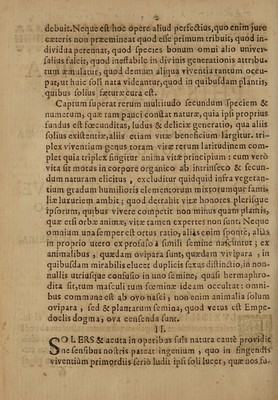 debuit. Neque est hoc opere aliud perfectius, quo enim jure
cæteris non præemineat quod esse primum tribuit, quod in-
dividua perennat, quod species bonum omni alio univer-
salius fulcit, quod ineffabile in divinis generationis attribu-
tum æmulatur, quod demum aliqua viventia tantum occu-
pat, ut huic soli nata videantur, quod in quibusdam plantis,
quibus solius fœturæ cura est.
Captum superat rerum multitudo secundum speciem &
numerum, quæ tam pauci constat natura, quia ipsi proprius
fundus est fœcunditas, ludus & deliciæ generatio, qua aliis
solius existentiæ, aliis etiam vitæ beneficium largitur. tri-
plex viventium genus totam vitæ rerum latitudinem com-
plet quia triplex fingitur anima vitæ principium: cum verò
vita sit motus in corpore organico ab intrinseco & secun-
dum naturam elicitus, excluditur quidquid infra vegetan-
tium gradum humilioris elementorum mixtorumque fantis
liæ luxuriem ambit; quod detrahit vitæ honores plerisque
ipsorum, quibus vivere competit non minus quam plantis,
quæ est orbæ animæ, vitæ tamen expertes non sunt. Neque
omnium una semper est ortus ratio, aliàs enim sponte, aliàs
in proprio utero ex profuso a simili semine nascuntur; ex
animalibus, quædam ovipara sunt, quædam vivipara, in
quibusdam mirabilis elucet duplicis sexus distinctio, in non-
nullis utriusque confusio in uno semine, quasi hermaphro-
dita sit, tum masculi tum fœminæ ideam occultat: omni-
bus commune est ab ovo nasci, non enim animalia solum
ovipara, sed & plantarum semina, quod vetus est Empe-
doclis dogma, ova censenda sunt.
II.
SOLERS & acuta in operibus suis natura cautè providit
ne sensibus nostris pateat ingenium, quo in fingendis
viventium primordiis seriò ludit ipsi soli lucet, quæ nos fu-